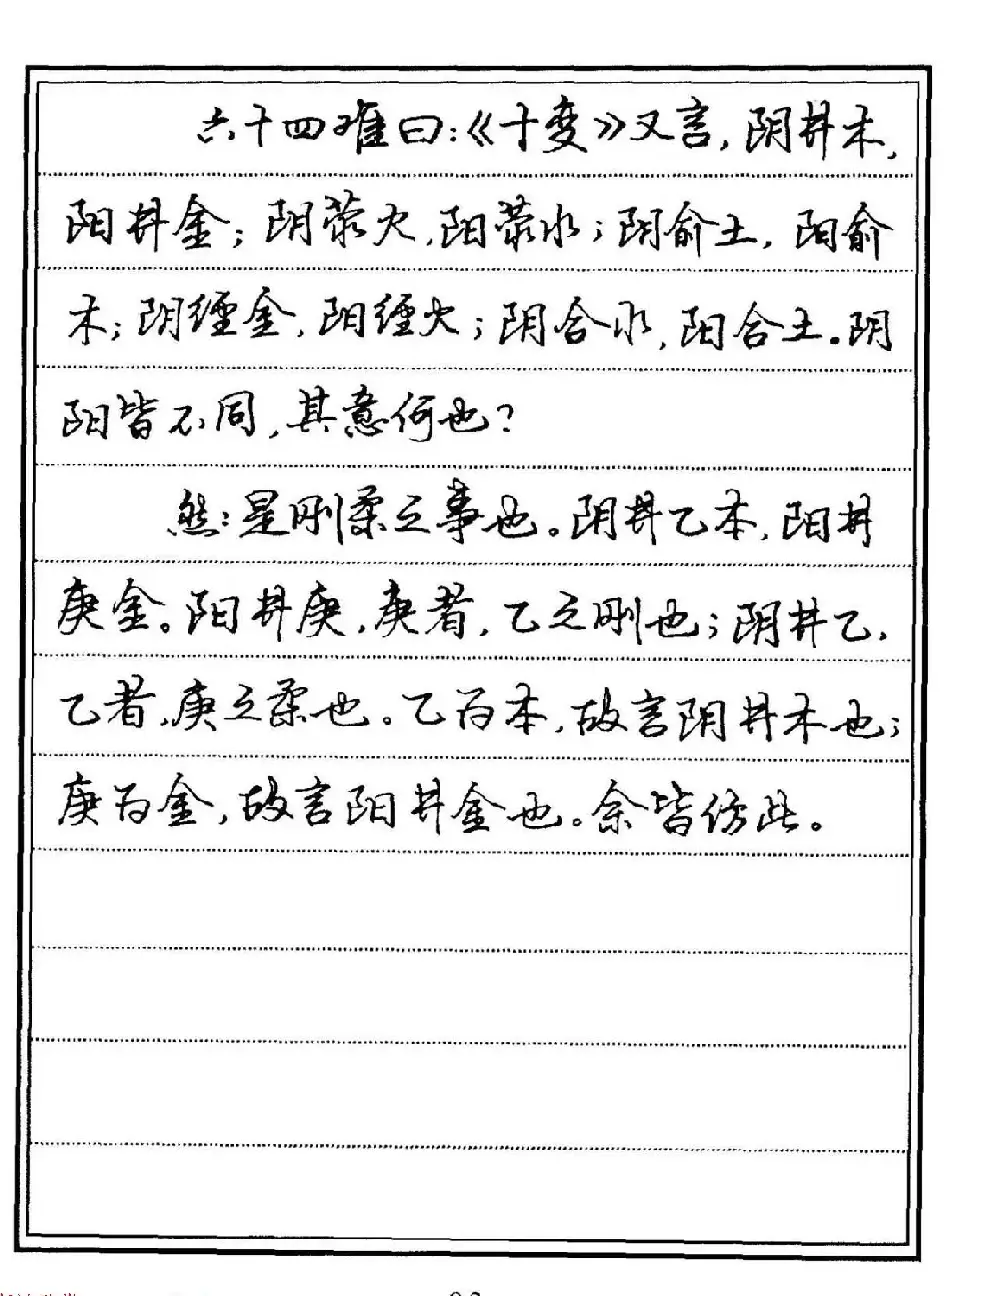 六十四难曰:《十变》又言,阴井木,
阳井金;阴荥火,阳荥水;阴俞土,阳俞
木;阴经金,阳经火;阴合水,阳合土。阴
阳皆不同,其意何也?
然:是刚柔之事也。阴井乙木,阳井
庚金。阳井庚,庚者,乙之刚也;阴井乙,
乙者,庚之柔也。乙为木,故言阴井木也;
庚为金,故言阳井金也。余皆仿此。